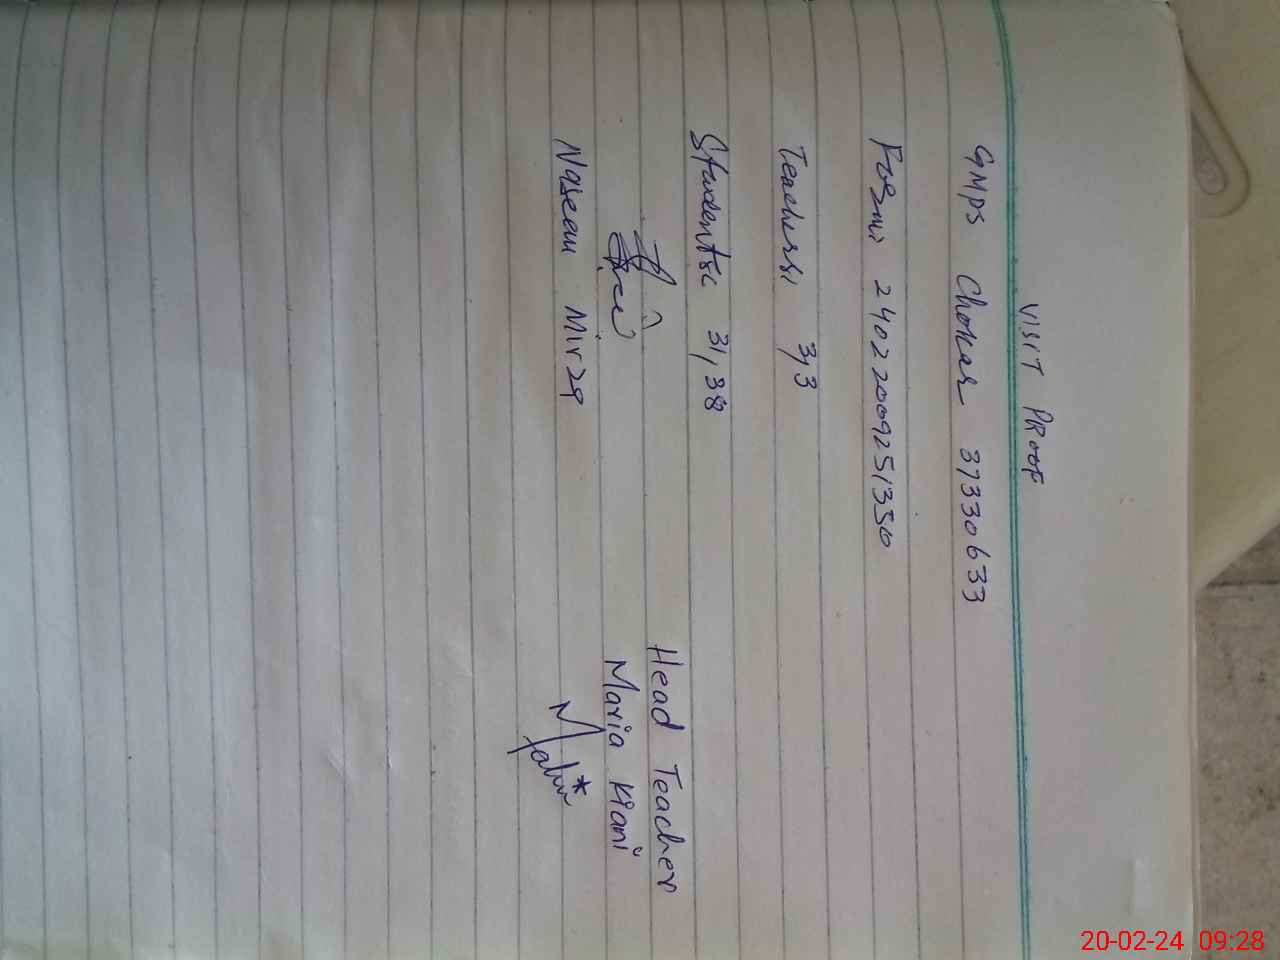 VISIT PROOF
GMPS Chokar 37330633
24022009251350
Teachers: 3,3
Students: 31,38
Naseem Mirza
Head Teacher
Maria Kiani
20-02-24 09:28